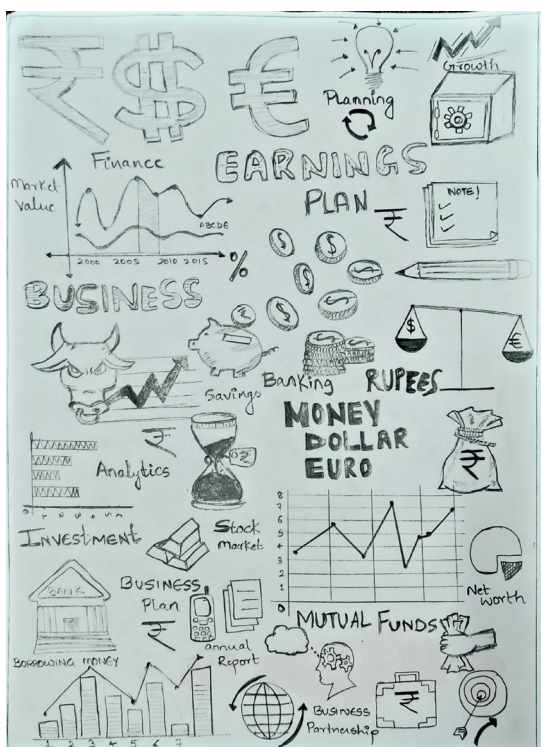 ₹ $ €
Planning
Growth
Finance
EARNINGS
PLAN
₹
NOTE!
Market
Value
ABCDE
2000 2005 2010 2015
%
BUSINESS
$
$
$
$
$
$
₹
Savings
Banking
RUPEES
$
€
MONEY
DOLLAR
EURO
₹
Analytics
₹
INVESTMENT
Stock
market
8
7
6
5
4
3
2
1
0
Net
worth
BANK
BUSINESS
Plan
₹
annual
Report
MUTUAL FUNDS
BORROWING MONEY
BUSINESS
Partnership
₹